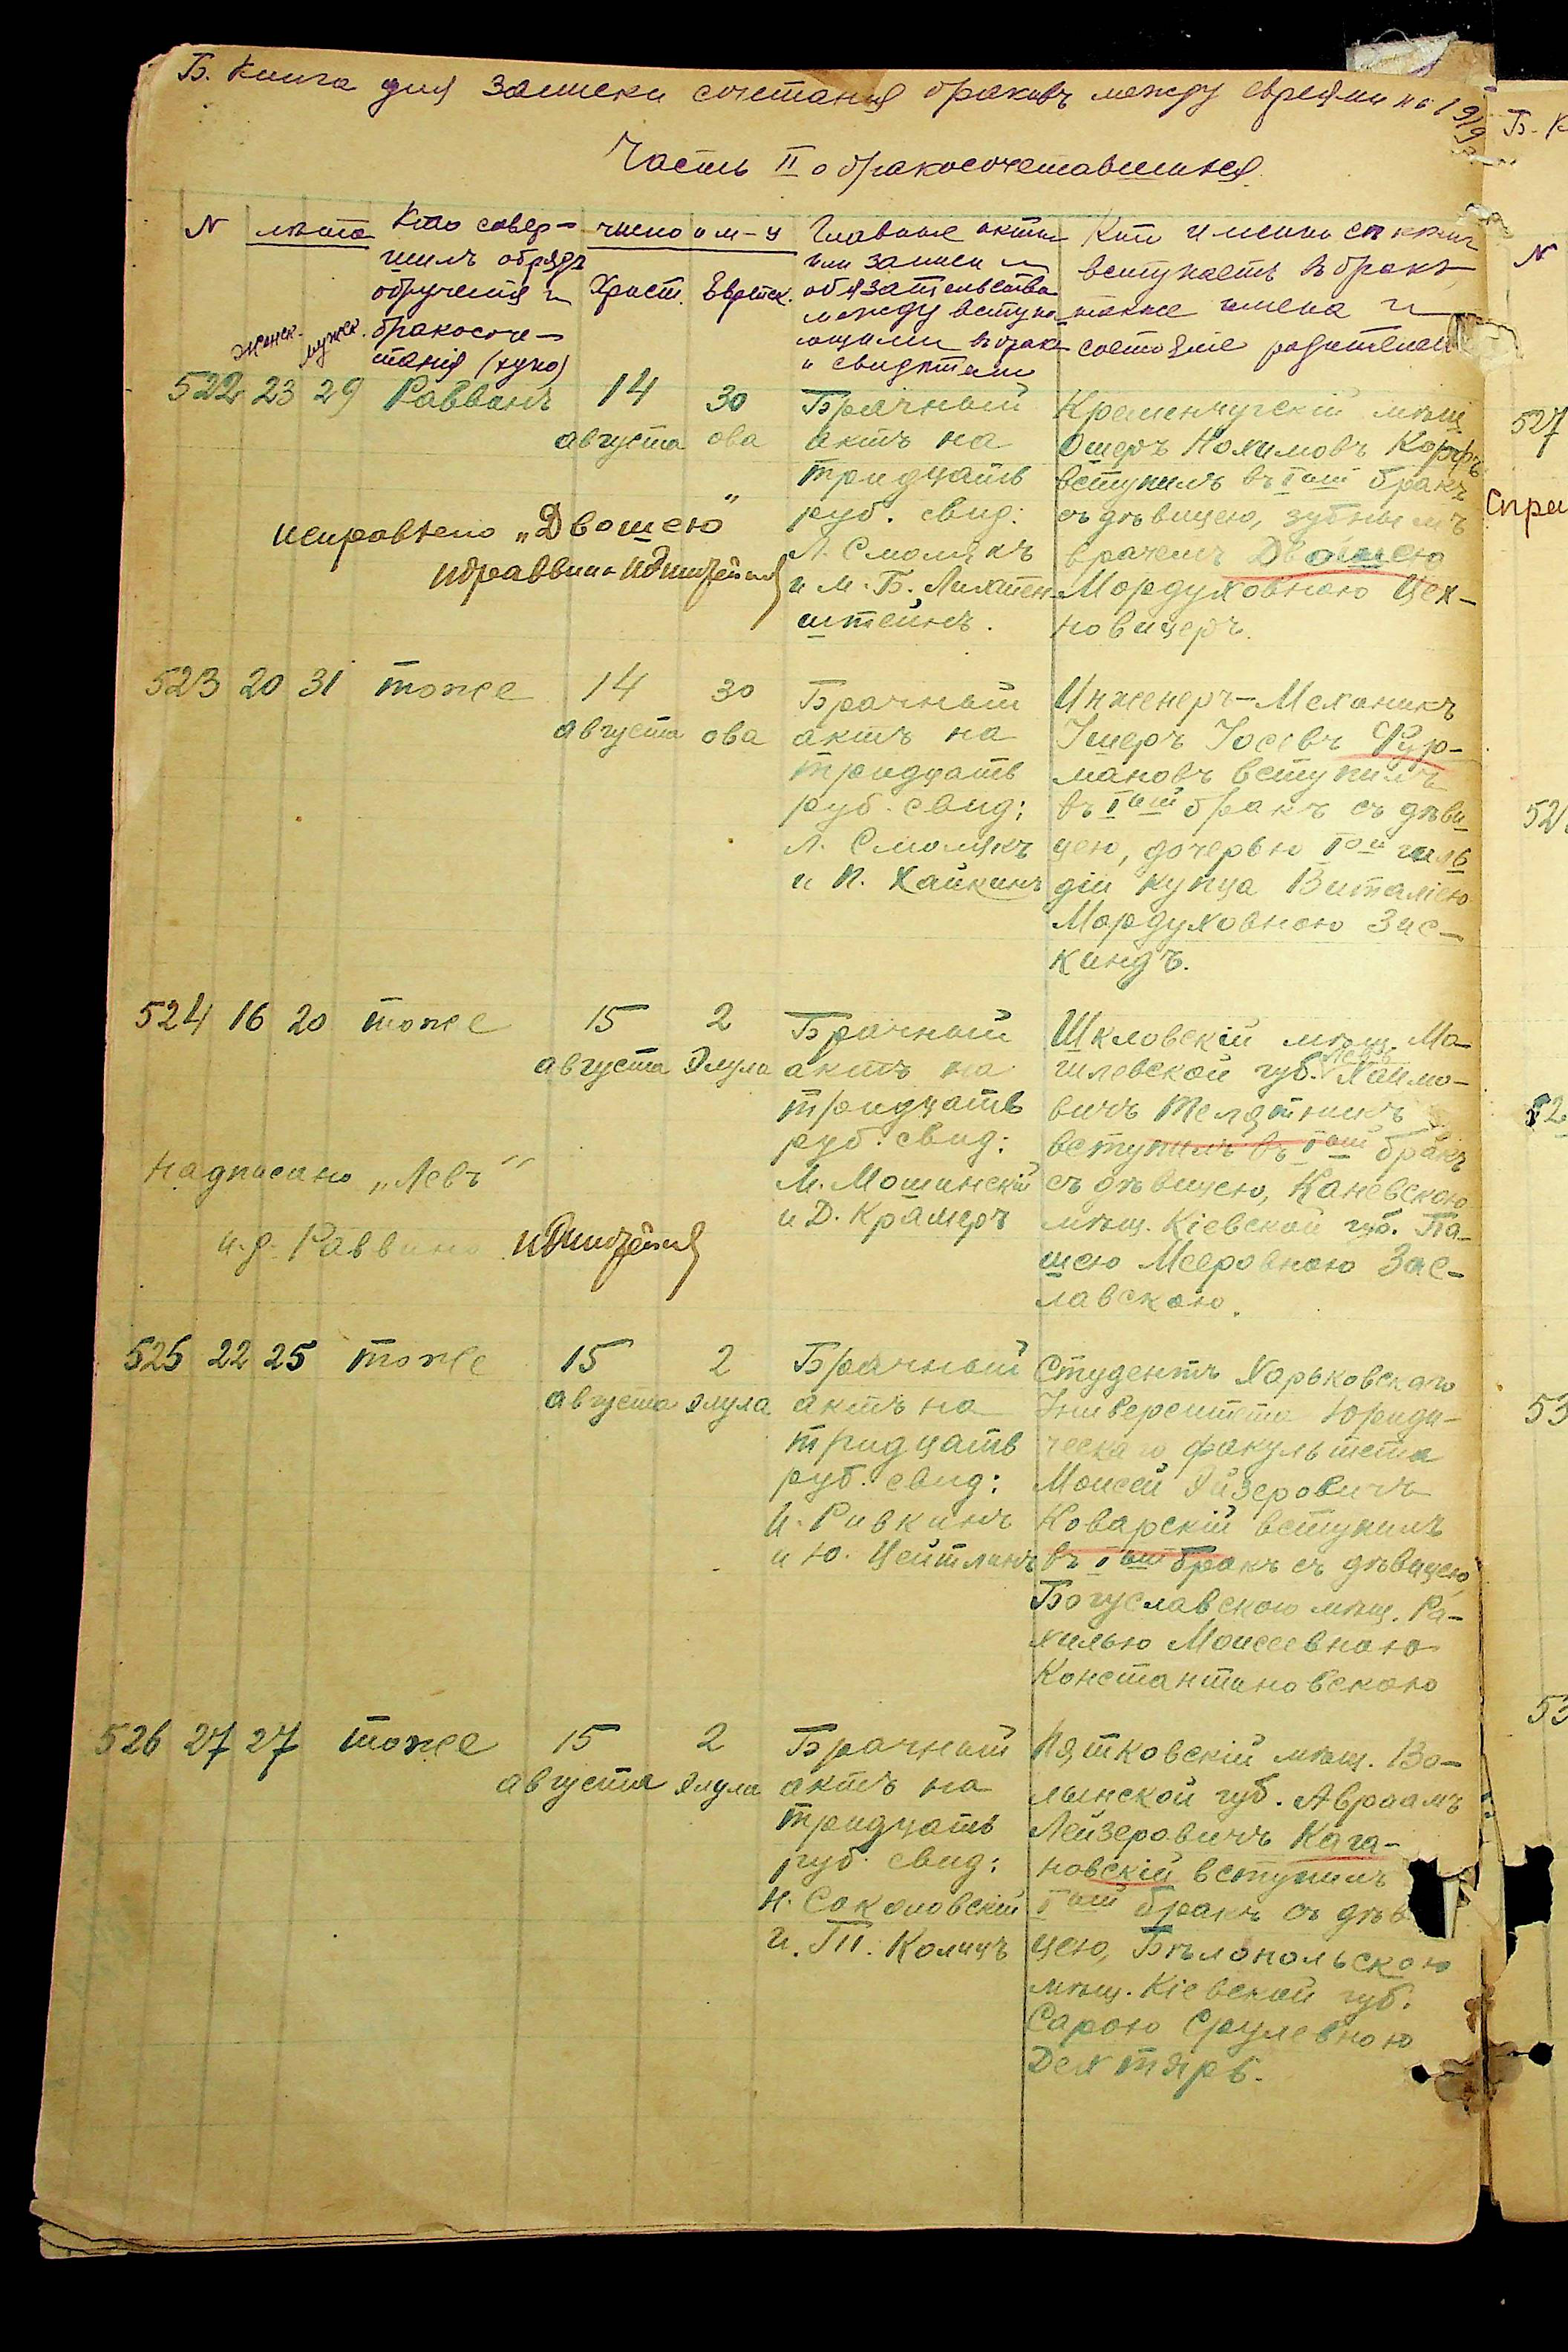 Б. Книга для записки сочетанія браковъ между евреями на 1919
Часть II о бракосочетавшихся.
N
лѣта
женск.
мужск.
Кто совер-
шилъ обрядъ
обрученія и
бракосоче-
танія (хупо)
число и м-ц
Христ. Еврейск.
Главные акты
или записи и
обязательства
между вступа
ющими въ бракъ
и свидѣтели
Кто именно съ кѣмъ
вступаетъ въ бракъ,
также имена и
состояніе родителей
522 23 29 Раввинъ 14 30
августа ова
Брачный
актъ на
тридцать
руб. свид:
Л. Смолякъ
и М. Б. Лихтен-
штейнъ.
Кременчугскій мѣщ.
Ошеръ Нохимовъ Корфъ
вступилъ въ Iый бракъ
съ дѣвицею, зубнымъ
врачемъ Двошею
Мордуховною Цех-
новицеръ.
исправлено „Двошею"
523 20 31 тоже 14 30
августа ова
Брачный
актъ на
тридцать
руб. свид:
Л. Смолякъ
и П. Хайкинъ
Инженеръ-Механикъ
Імеръ Іосевъ Фур-
мановъ вступилъ
въ Iый бракъ съ дѣви
цею, дочерью Iой гиль
діи купца Виталіею
Мордуховною Зис-
киндъ.
524 16 20 тоже 15 2
августа Элула
Брачный
актъ на
тридцать
руб. свид:
М. Мошинскій
и Д. Крамеръ
Шкловскій мѣщ. Мо-
гилевской губ. Левъ Хаимо-
вичъ Телятникъ
вступилъ въ Iый бракъ
съ дѣвицею, Каневскою
мѣщ. Кіевской губ. Па-
шею Мееровною Зас-
лавскою.
Надписано „Левъ"
и.д. Раввина
525 22 25 тоже 15 2
августа элула
Брачный
актъ на
тридцать
руб. свид:
И. Ривкинъ
и Ю. Цейтлинъ
Студентъ Харьковскаго
Университета Юриди-
ческаго факультета
Моисей Эйзеровичъ
Коварскій вступилъ
въ Iый бракъ съ дѣвицею,
Богуславскою мѣщ. Ра-
хилью Моисеевною
Константиновскою
526 27 27 тоже 15 2
августа элула
Брачный
актъ на
тридцать
руб. свид:
Н. Соколовскій
и. П. Колицъ
Пятковскій мѣщ. Во-
лынской губ. Авраамъ
Лейзеровичъ Кага-
новскій вступилъ
Iый бракъ съ дѣв
цею, Бѣлопольскою
мѣщ. Кіевской губ.
Сарою Срулевною
Дехтярь.
Б. К
N
527
Спра
52
53
53